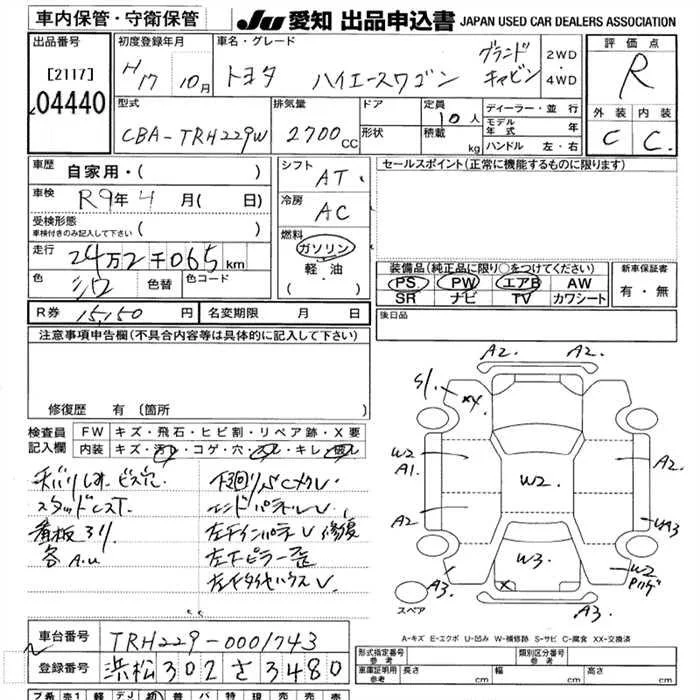 車内保管・守衛保管
JU 愛知 出品申込書 JAPAN USED CAR DEALERS ASSOCIATION
出品番号
[2117]
04440
初度登録年月
H17 10月
車名・グレード
トヨタ ハイエースワゴン グランドキャビン
2WD
・
4WD
評価点
R
外装 内装
C C.
型式
CBA-TRH229W
排気量
2700cc
ドア
形状
定員
10人
積載
kg
ディーラー・並行
モデル年式 年
ハンドル 左・右
車歴 自家用・( )
車検 R9年4月( 日)
受検形態
車検付きのみ記入して下さい ( )
走行 24万2千065km
色 シロ 色替 色コード
シフト AT
冷房 AC
燃料
ガソリン
軽・油
セールスポイント(正常に機能するものに限ります)
装備品(純正品に限り○をつけてください)
PS PW エアB AW
SR ナビ TV カワシート
新車保証書
有・無
R券 15,150円 名変期限 月 日
後日品
注意事項申告欄(不具合内容等は具体的に記入して下さい)
修復歴 有 (箇所 )
検査員記入欄
FW キズ・飛石・ヒビ割・リペア跡・X要
内装 キズ・汚れ・コゲ・穴・スレ・キレ・
天バリしみ ビス穴
スタッドレスT.
看板
各A.U
下廻りSCメクレ
エンドパネルV
左インパネV 修復
左ピラー歪
左タイヤハウスV
A2. A2.
S/1. X4
W2
A1.
A2
W2.
A2.
YA3
W3.
X
W2
A3. A3.
スペア
A-キズ E-エクボ U-凹み W-補修跡 S-サビ C-腐食 XX-交換済
車台番号 TRH229-0001743
登録番号 浜松302さ3480
形式指定番号
参考
類別区分番号
参考
車庫証明用
参考
長さ cm 幅 cm 高さ cm